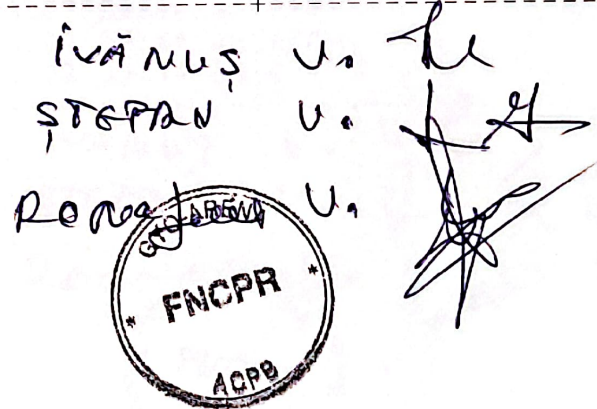 IVĂNUȘ V.
ȘTEFAN V.
V.
FNCPR
ACPB